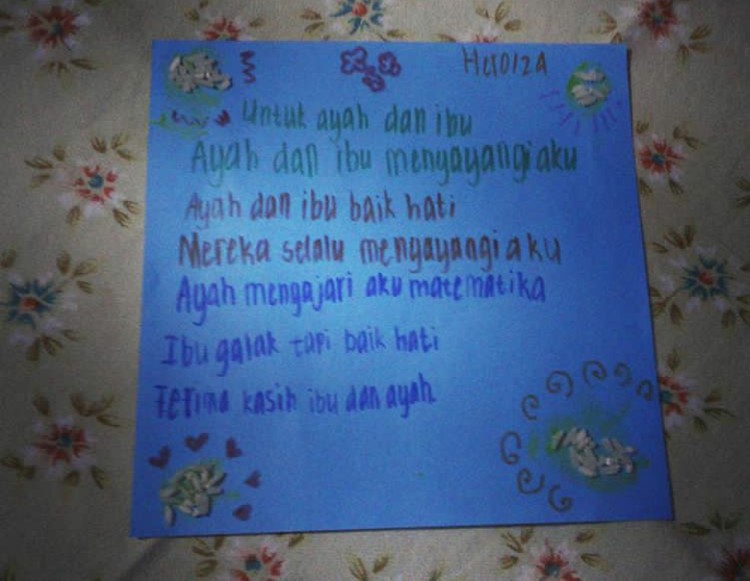 Heroiza
Untuk ayah dan ibu
Ayah dan ibu menyayangi aku
Ayah dan ibu baik hati
Mereka selalu mengayangi aku
Ayah mengajari aku matematika
Ibu galak tapi baik hati
Terima kasih ibu dan ayah